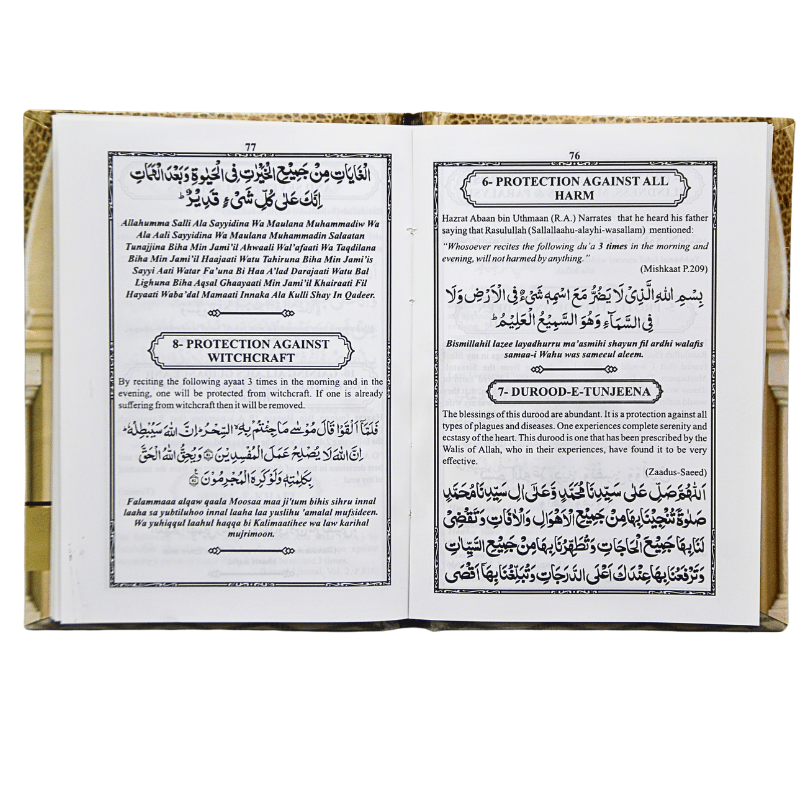 76
6- PROTECTION AGAINST ALL
HARM
Hazrat Abaan bin Uthmaan (R.A.) Narrates that he heard his father
saying that Rasulullah (Sallallaahu-alayhi-wasallam) mentioned:
"Whosoever recites the following du'a 3 times in the morning and
evening, will not harmed by anything."
(Mishkaat P.209)
بِسْمِ اللهِ الَّذِيْ لَا يَضُرُّ مَعَ اسْمِهٖ شَيْءٌ فِي الْاَرْضِ وَلَا
فِي السَّمَآءِ وَهُوَ السَّمِيْعُ الْعَلِيْمُ ؕ
Bismillahil lazee layadhurru ma'asmihi shayun fil ardhi walafis
samaa-i Wahu was sameeul aleem.
7- DUROOD-E-TUNJEENA
The blessings of this durood are abundant. It is a protection against all
types of plagues and diseases. One experiences complete serenity and
ecstasy of the heart. This durood is one that has been prescribed by the
Walis of Allah, who in their experiences, have found it to be very
effective.
(Zaadus-Saeed)
اَللّٰهُمَّ صَلِّ عَلٰى سَيِّدِنَا مُحَمَّدٍ وَّعَلٰى اٰلِ سَيِّدِنَا مُحَمَّدٍ
صَلٰوةً تُنْجِيْنَا بِهَا مِنْ جَمِيْعِ الْاَهْوَالِ وَالْاٰفَاتِ وَتَقْضِيْ
لَنَا بِهَا جَمِيْعَ الْحَاجَاتِ وَتُطَهِّرُنَا بِهَا مِنْ جَمِيْعِ السَّيِّاٰتِ
وَتَرْفَعُنَا بِهَا عِنْدَكَ اَعْلَى الدَّرَجَاتِ وَتُبَلِّغُنَا بِهَا اَقْصَى
77
الْغَايَاتِ مِنْ جَمِيْعِ الْخَيْرَاتِ فِي الْحَيٰوةِ وَبَعْدَ الْمَمَاتِ
اِنَّكَ عَلٰى كُلِّ شَيْءٍ قَدِيْرٌ ؕ
Allahumma Salli Ala Sayyidina Wa Maulana Muhammadiw Wa
Ala Aali Sayyidina Wa Maulana Muhammadin Salaatan
Tunajjina Biha Min Jami'il Ahwaali Wal'afaati Wa Taqdilana
Biha Min Jami'il Haajaati Watu Tahiruna Biha Min Jami'is
Sayyi Aati Watar Fa'una Bi Haa A'lad Darajaati Watu Bal
Lighuna Biha Aqsal Ghaayaati Min Jami'il Khairaati Fil
Hayaati Waba'dal Mamaati Innaka Ala Kulli Shay In Qadeer.
8- PROTECTION AGAINST
WITCHCRAFT
By reciting the following ayaat 3 times in the morning and in the
evening, one will be protected from witchcraft. If one is already
suffering from witchcraft then it will be removed.
فَلَمَّآ اَلْقَوْا قَالَ مُوْسٰى مَا جِئْتُمْ بِهِ ۙ السِّحْرُ ؕ اِنَّ اللهَ سَيُبْطِلُهٗ ؕ
اِنَّ اللهَ لَا يُصْلِحُ عَمَلَ الْمُفْسِدِيْنَ ۝ وَيُحِقُّ اللهُ الْحَقَّ
بِكَلِمٰتِهٖ وَلَوْ كَرِهَ الْمُجْرِمُوْنَ ۝
Falammaa alqaw qaala Moosaa maa ji'tum bihis sihru innal
laaha sa yubtiluhoo innal laaha laa yuslihu 'amalal mufsideen.
Wa yuhiqqul laahul haqqa bi Kalimaatihee wa law karihal
mujrimoon.